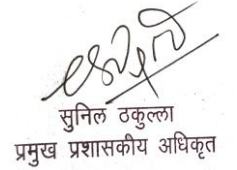 सुनिल ठकुल्ला
प्रमुख प्रशासकीय अधिकृत